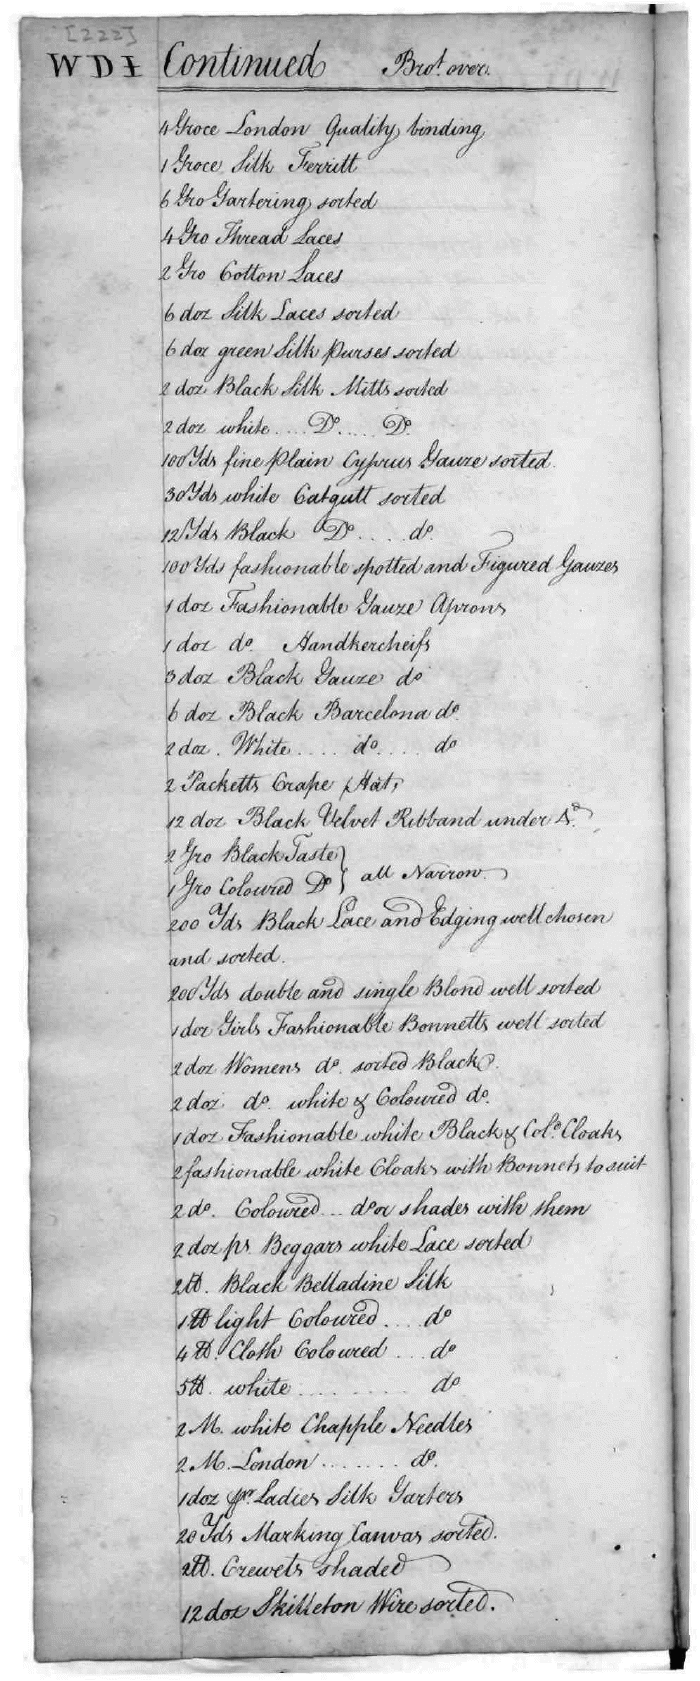 [222]
W D I Continued Bro.t over.
4 Groce London Quality binding
1 Groce Silk Ferritt
6 Gro Gartering sorted
4 Gro Thread Laces
2 Gro Cotton Laces
6 doz Silk Laces sorted
6 doz green Silk purses sorted
2 doz Black Silk Mitts sorted
2 doz white .... D.o .... D.o
100 Yds fine plain Cyprus Gauze sorted.
30 Yds white Catgutt sorted
12 Yds Black D.o .... d.o
100 Yds fashionable spotted and Figured Gauzes
1 doz Fashionable Gauze Aprons
1 doz d.o Handkercheifs
3 doz Black Gauze d.o
6 doz Black Barcelona d.o
2 doz. White .... d.o .... d.o
2 Packetts Crape Hat,
12 doz Black Velvet Ribband under
2 Gro Black Taste
1 Gro Coloured D.o } all Narrow
200 Yds Black Lace and Edging well chosen
and sorted.
200 Yds double and single Blond well sorted
1 doz Girls Fashionable Bonnetts well sorted
2 doz Womens d.o sorted Black
2 doz. d.o white & Coloured d.o
1 doz Fashionable white Black & Col.d Cloaks
2 fashionable white Cloaks with Bonnets to suit
2 d.o Coloured ... d.o or shades with them
2 doz ps Beggars white Lace sorted
2 lb. Black Belladine Silk
1 lb light Coloured .... d.o
4 lb. Cloth Coloured ... d.o
5 lb. white .......... d.o
2 M. white Chapple Needles
2 M. London ....... d.o
1 doz pr. Ladies Silk Garters
20 Yds Marking Canvas sorted.
2 lb. Crewels shaded
12 doz Skilleton Wire sorted.